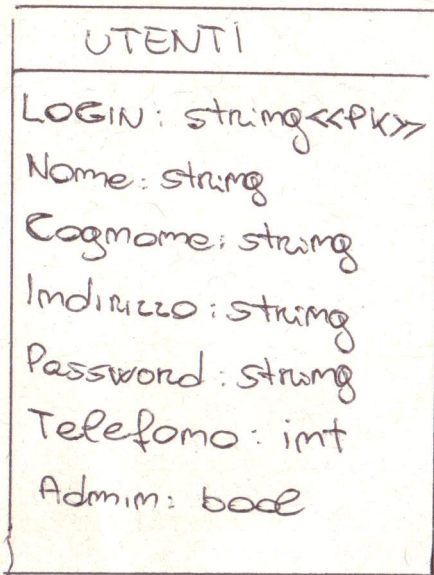 UTENTI
LOGIN: string<<PK>>
Nome: string
Cognome: string
Indirizzo: string
Password: string
Telefono: int
Admin: bool